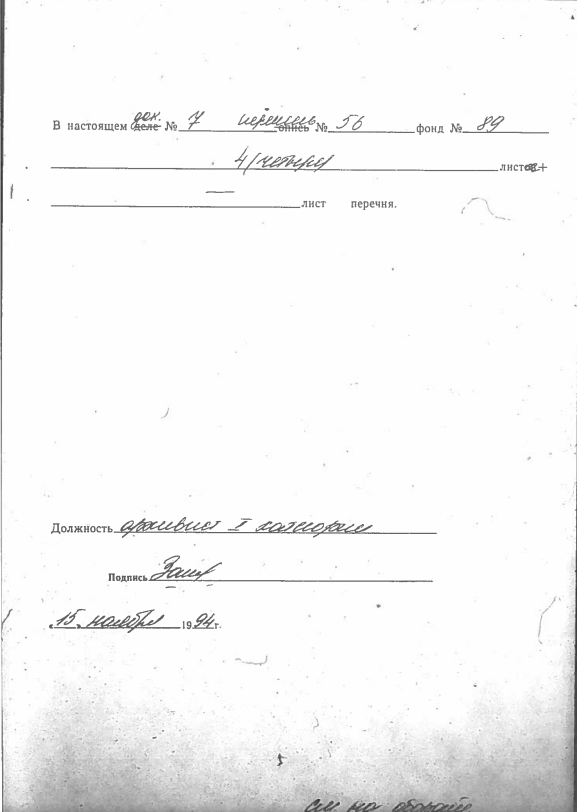 В настоящем док. деле № 7 перечень опись № 56 фонд № 89
4 (четыре) листов +
— лист перечня.
Должность архивист I категории
Подпись
„15„ ноября 1994 г.
См на обороте